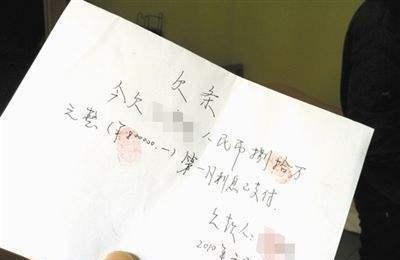 欠条
今欠 人民币捌拾万
元整(￥800000.—)第一月利息已支付.
欠款人:
2010年